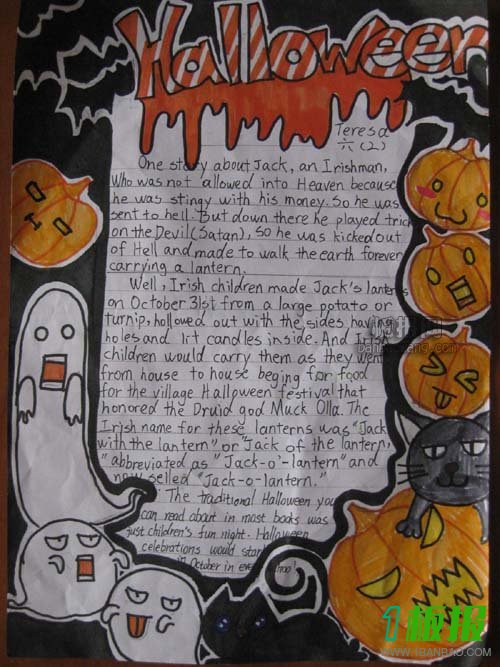 Halloween
Teresa
六(2)
One story about Jack, an Irishman,
Who was not allowed into Heaven because
he was stingy with his money. So he was
sent to hell. But down there he played trick
on the Devil(Satan), So he was kicked out
of Hell and made to walk the earth forever
carrying a lantern.
Well, Irish children made Jack's lanterns
on October 31st from a large potato or
turnip, hollowed out with the sides having
holes and lit candles inside. And Irish
children would carry them as they went
from house to house beging for food
for the village Halloween festival that
honored the Druid god Muck Olla. The
Irish name for these lanterns was "Jack
with the lantern" or "Jack of the lantern,
" abbreviated as "Jack-o'-lantern" and
now selled "Jack-o-lantern."
The traditional Halloween you
can read about in most books was
just children's fun night. Halloween
celebrations would start
October in every
1板报
WWW.1BANBAO.COM